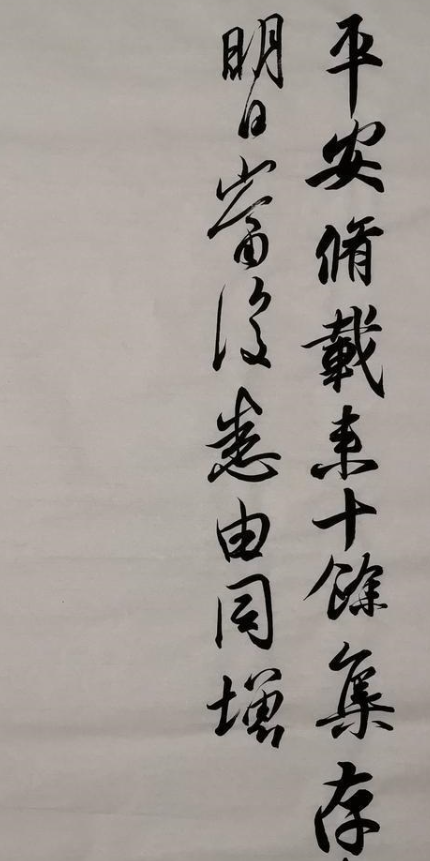 平安脩載来十餘集存
明日當復悉由同增